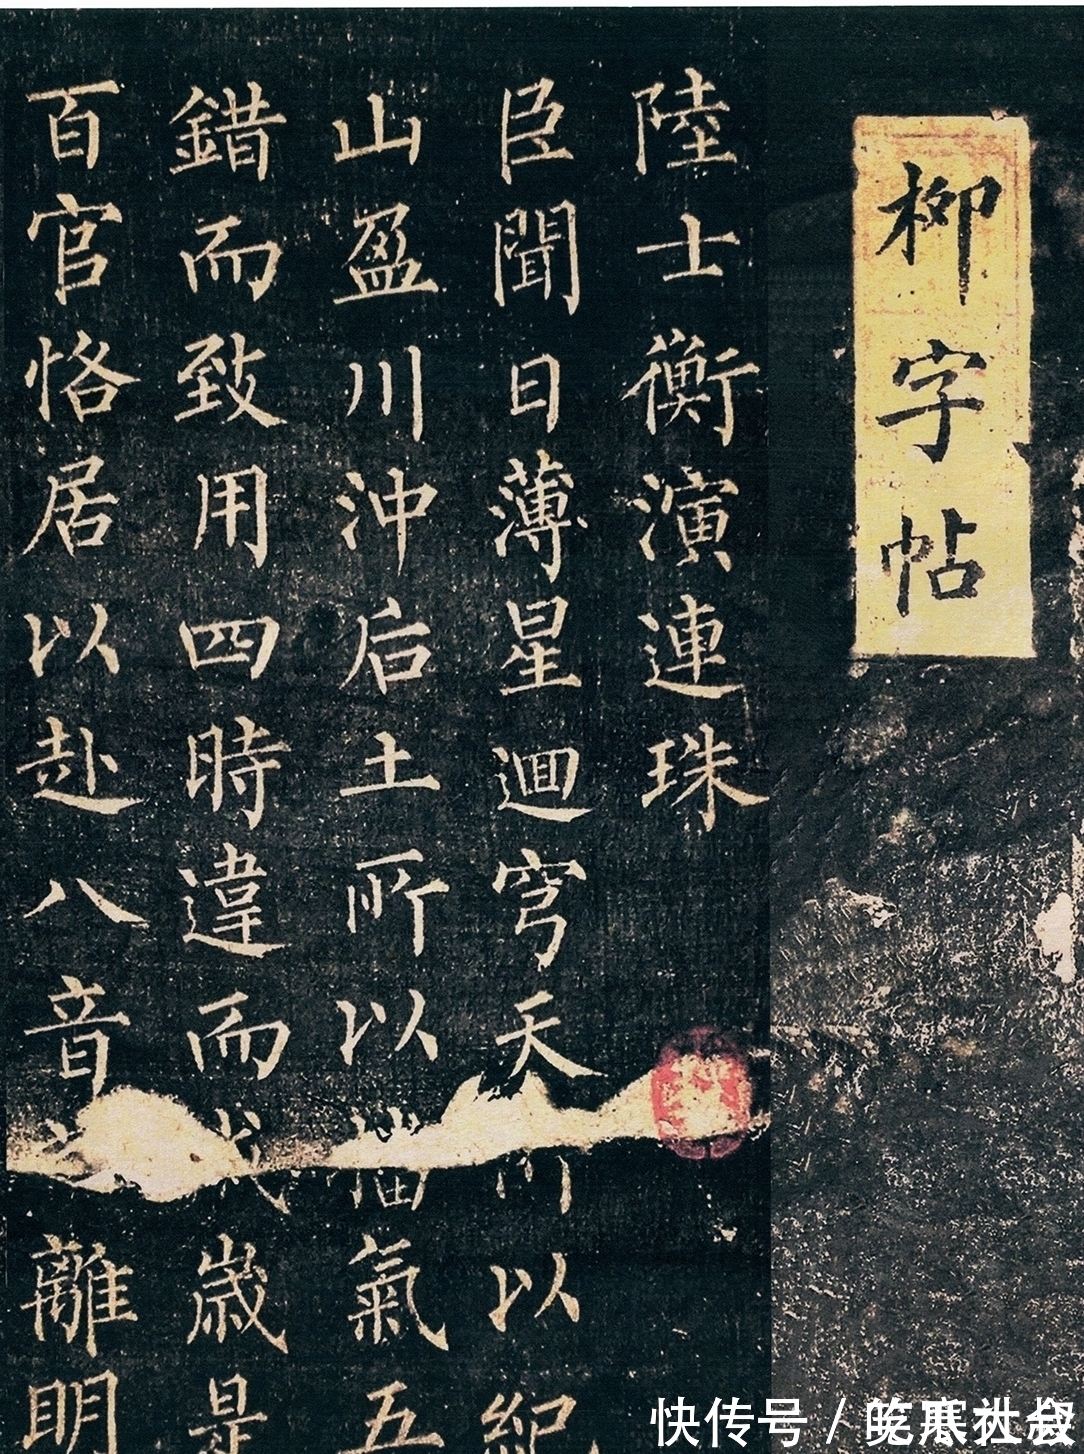 柳字帖
陸士衡演連珠
臣聞日薄星迴穹天所以紀
山盈川沖后土所以播氣五
錯而致用四時違而代歲是
百官恪居以赴八音離明
快传号/